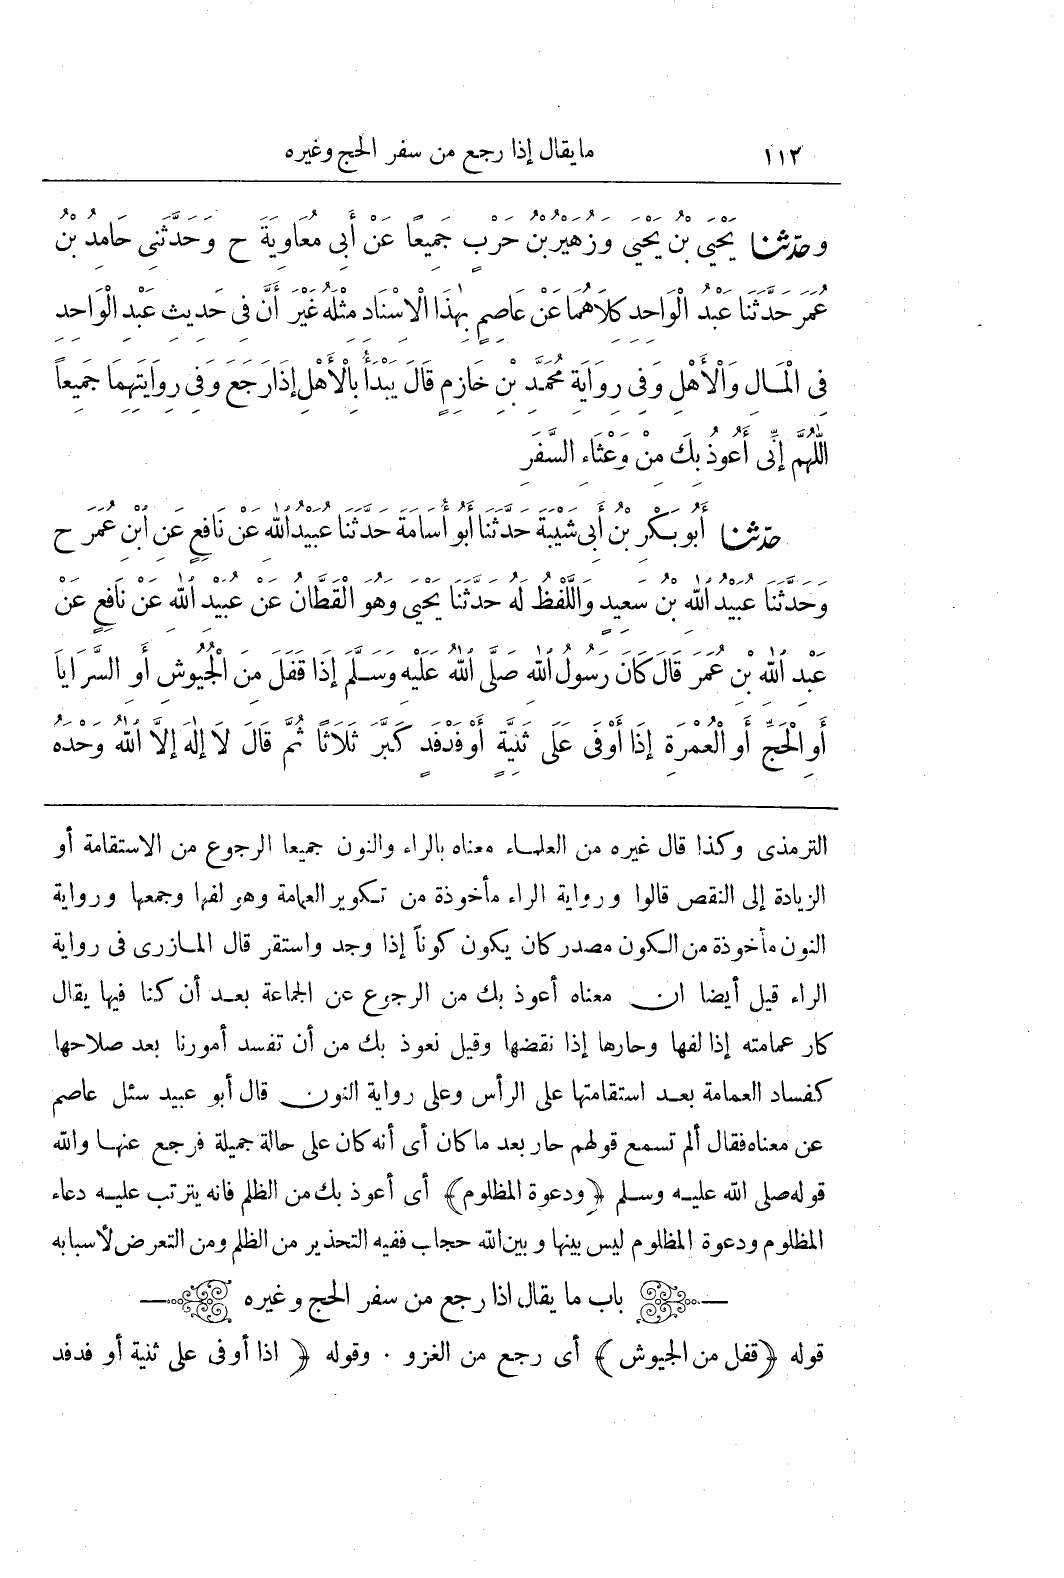 ١١٢ ما يقال إذا رجع من سفر الحج وغيره
وحَدَّثَنَا يَحْيَى بْنُ يَحْيَى وَزُهَيْرُ بْنُ حَرْبٍ جَمِيعًا عَنْ أَبِي مُعَاوِيَةَ ح وَحَدَّثَنِي حَامِدُ بْنُ
عُمَرَ حَدَّثَنَا عَبْدُ الْوَاحِدِ كِلَاهُمَا عَنْ عَاصِمٍ بِهٰذَا الْإِسْنَادِ مِثْلَهُ غَيْرَ أَنَّ فِي حَدِيثِ عَبْدِ الْوَاحِدِ
فِي الْمَالِ وَالْأَهْلِ وَفِي رِوَايَةِ مُحَمَّدِ بْنِ خَازِمٍ قَالَ يَبْدَأُ بِالْأَهْلِ إِذَا رَجَعَ وَفِي رِوَايَتِهِمَا جَمِيعًا
اللّٰهُمَّ إِنِّي أَعُوذُ بِكَ مِنْ وَعْثَاءِ السَّفَرِ
حَدَّثَنَا أَبُو بَكْرِ بْنُ أَبِي شَيْبَةَ حَدَّثَنَا أَبُو أُسَامَةَ حَدَّثَنَا عُبَيْدُ اللّٰهِ عَنْ نَافِعٍ عَنِ ابْنِ عُمَرَ ح
وَحَدَّثَنَا عُبَيْدُ اللّٰهِ بْنُ سَعِيدٍ وَاللَّفْظُ لَهُ حَدَّثَنَا يَحْيَى وَهُوَ الْقَطَّانُ عَنْ عُبَيْدِ اللّٰهِ عَنْ نَافِعٍ عَنْ
عَبْدِ اللّٰهِ بْنِ عُمَرَ قَالَ كَانَ رَسُولُ اللّٰهِ صَلَّى اللّٰهُ عَلَيْهِ وَسَلَّمَ إِذَا قَفَلَ مِنَ الْجُيُوشِ أَوِ السَّرَايَا
أَوِ الْحَجِّ أَوِ الْعُمْرَةِ إِذَا أَوْفَى عَلَى ثَنِيَّةٍ أَوْ فَدْفَدٍ كَبَّرَ ثَلَاثًا ثُمَّ قَالَ لَا إِلٰهَ إِلَّا اللّٰهُ وَحْدَهُ
الترمذى وكذا قال غيره من العلماء معناه بالراء والنون جميعا الرجوع من الاستقامة أو
الزيادة إلى النقص قالوا ورواية الراء مأخوذة من تكوير العمامة وهو لفها وجمعها ورواية
النون مأخوذة من الكون مصدر كان يكون كوناً إذا وجد واستقر قال المازرى فى رواية
الراء قيل أيضا ان معناه أعوذ بك من الرجوع عن الجماعة بعد أن كنا فيها يقال
كار عمامته إذا لفها وحارها إذا نقضها وقيل نعوذ بك من أن تفسد أمورنا بعد صلاحها
كفساد العمامة بعد استقامتها على الرأس وعلى رواية النون قال أبو عبيد سئل عاصم
عن معناه فقال ألم تسمع قولهم حار بعد ما كان أى أنه كان على حالة جميلة فرجع عنها والله
قوله صلى الله عليه وسلم ﴿ودعوة المظلوم﴾ أى أعوذ بك من الظلم فانه يترتب عليه دعاء
المظلوم ودعوة المظلوم ليس بينها وبين الله حجاب ففيه التحذير من الظلم ومن التعرض لأسبابه
باب ما يقال اذا رجع من سفر الحج وغيره
قوله ﴿قفل من الجيوش﴾ أى رجع من الغزو . وقوله ﴿ اذا أوفى على ثنية أو فدفد